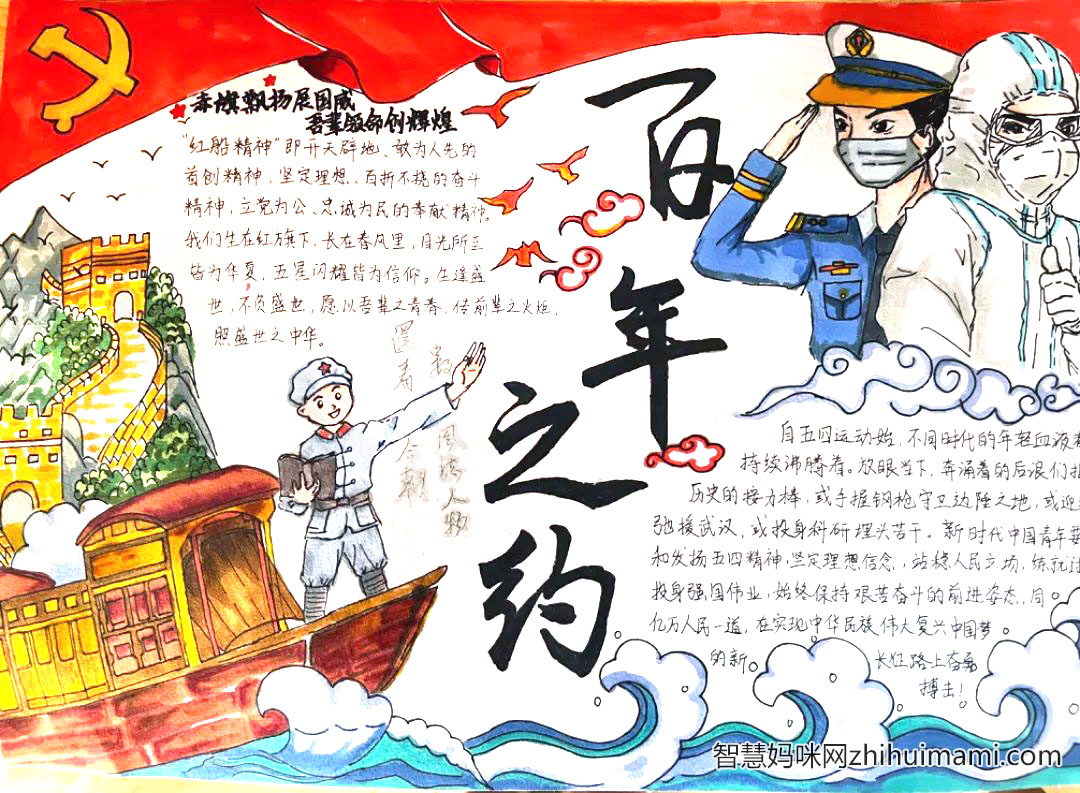 赤旗飘扬展国威
吾辈致命创辉煌
"红船精神"即开天辟地、敢为人先的
首创精神，坚定理想、百折不挠的奋斗
精神，立党为公、忠诚为民的奉献精神。
我们生在红旗下，长在春风里，目光所至
皆为华夏，五星闪耀皆为信仰。生逢盛
世，不负盛世，愿以吾辈之青春，传前辈之火炬，
照盛世之中华。
数风流人物
还看今朝
百年之约
自五四运动始，不同时代的年轻血液
持续沸腾着。放眼当下，奔涌着的后浪们
历史的接力棒，或手握钢枪守卫边陲之地，或
驰援武汉，或投身科研埋头苦干。新时代中国青年要
和发扬五四精神，坚定理想信念，站稳人民立场，练就
投身强国伟业，始终保持艰苦奋斗的前进姿态，同
亿万人民一道，在实现中华民族伟大复兴中国梦
的新。长征路上奋勇
搏击！
智慧妈咪网zhihuimami.com